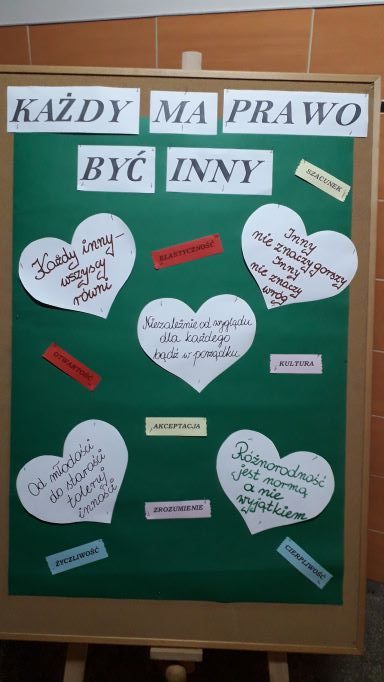 KAŻDY MA PRAWO
BYĆ INNY
SZACUNEK
Każdy inny—
wszyscy
równi
ELASTYCZNOŚĆ
Inny
nie znaczy gorszy
Inny
nie znaczy
wróg
Niezależnie od wyglądu
dla każdego
bądź w porządku
OTWARTOŚĆ
KULTURA
AKCEPTACJA
Od młodości
do starości
toleruj
inności
Różnorodność
jest normą
a nie
wyjątkiem
ZROZUMIENIE
ŻYCZLIWOŚĆ
CIERPLIWOŚĆ